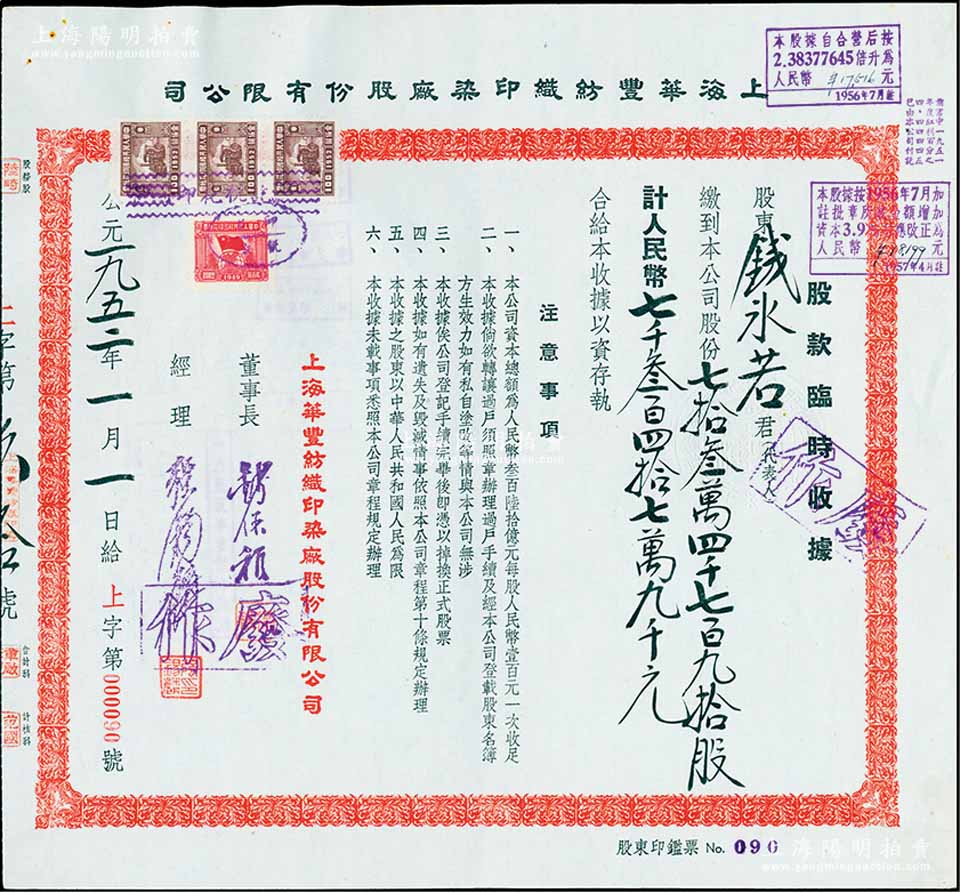 上海陽明拍賣
www.yangmingauction.com
上海華豐紡織印染廠股份有限公司
本股據自合營后按
2.38377645倍升爲
人民幣 元
1956年7月註
本股據按1956年7月加
註批章 額增加
資本3.9 應改正爲
人民幣 元
1957年4月註
股款臨時收據
股東錢永若君代表人
繳到本公司股份七拾叁萬四千七百九拾股
計人民幣七千叁百四拾七萬九千元
合給本收據以資存執
注意事項
一、本公司資本總額爲人民幣叁百陸拾億元每股人民幣壹百元一次收足
二、本收據倘欲轉讓過戶須照章辦理過戶手續及經本公司登載股東名簿
方生效力如有私自塗改等情與本公司無涉
三、本收據俟公司登記手續完畢後卽憑以掉換正式股票
四、本收據如有遺失及毀滅情事依照本公司章程第十條規定辦理
五、本收據之股東以中華人民共和國人民爲限
六、本收據未載事項悉照本公司章程規定辦理
上海華豐紡織印染廠股份有限公司
董事長
經理
作廢
公元一九五二年一月一日給
上字第000090號
股務股
會計科
計核科
股東印鑑票 No. 090
上海陽明拍賣
www.yangmingauction.com